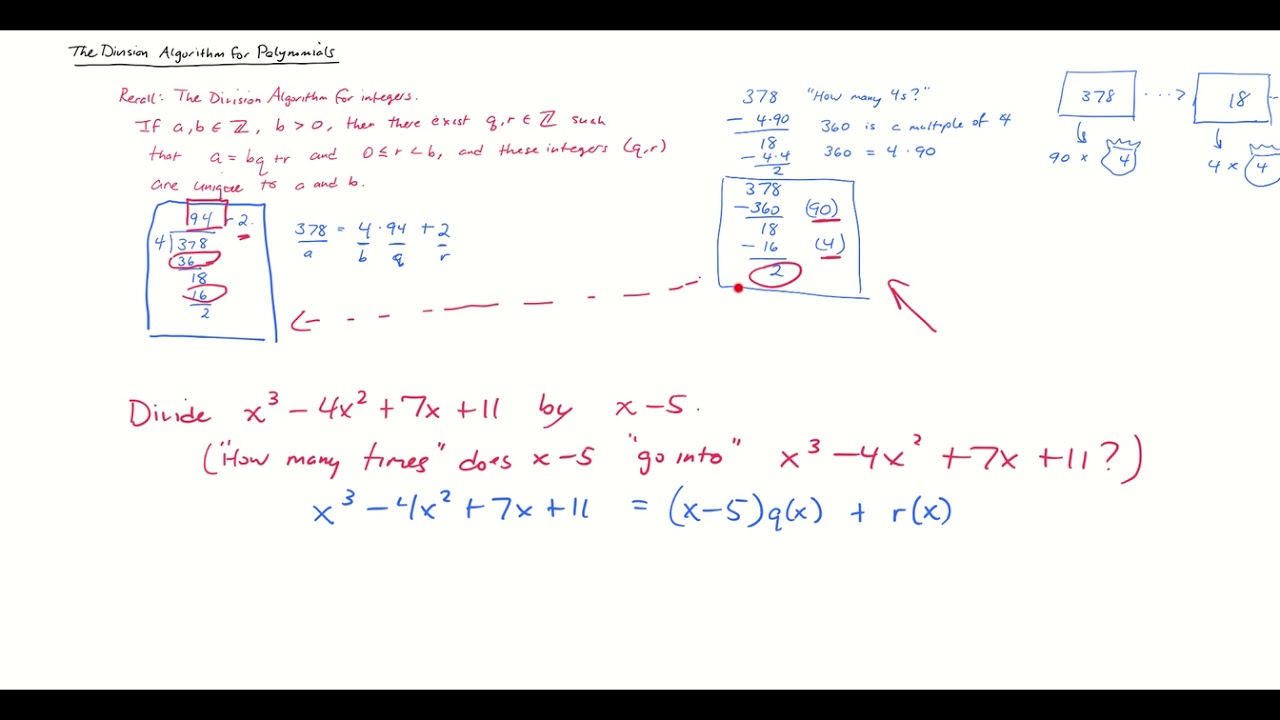 The Division Algorithm for Polynomials
Recall: The Division Algorithm for integers.
If a, b ∈ ℤ, b > 0, then there exist q, r ∈ ℤ such
that a = bq + r and 0 ≤ r < b, and these integers (q, r)
are unique to a and b.
94 r 2.
4) 378
36
18
16
2
378 = 4 · 94 + 2
a b q r
378 "How many 4s?"
− 4·90 360 is a multiple of 4
18 360 = 4 · 90
− 4·4
2
378
− 360 (90)
18
− 16 (4)
2
378 · · · > 18
90 × 4 4 × 4
Divide x³ − 4x² + 7x + 11 by x − 5.
("How many times" does x − 5 "go into" x³ − 4x² + 7x + 11?)
x³ − 4x² + 7x + 11 = (x − 5)q(x) + r(x)